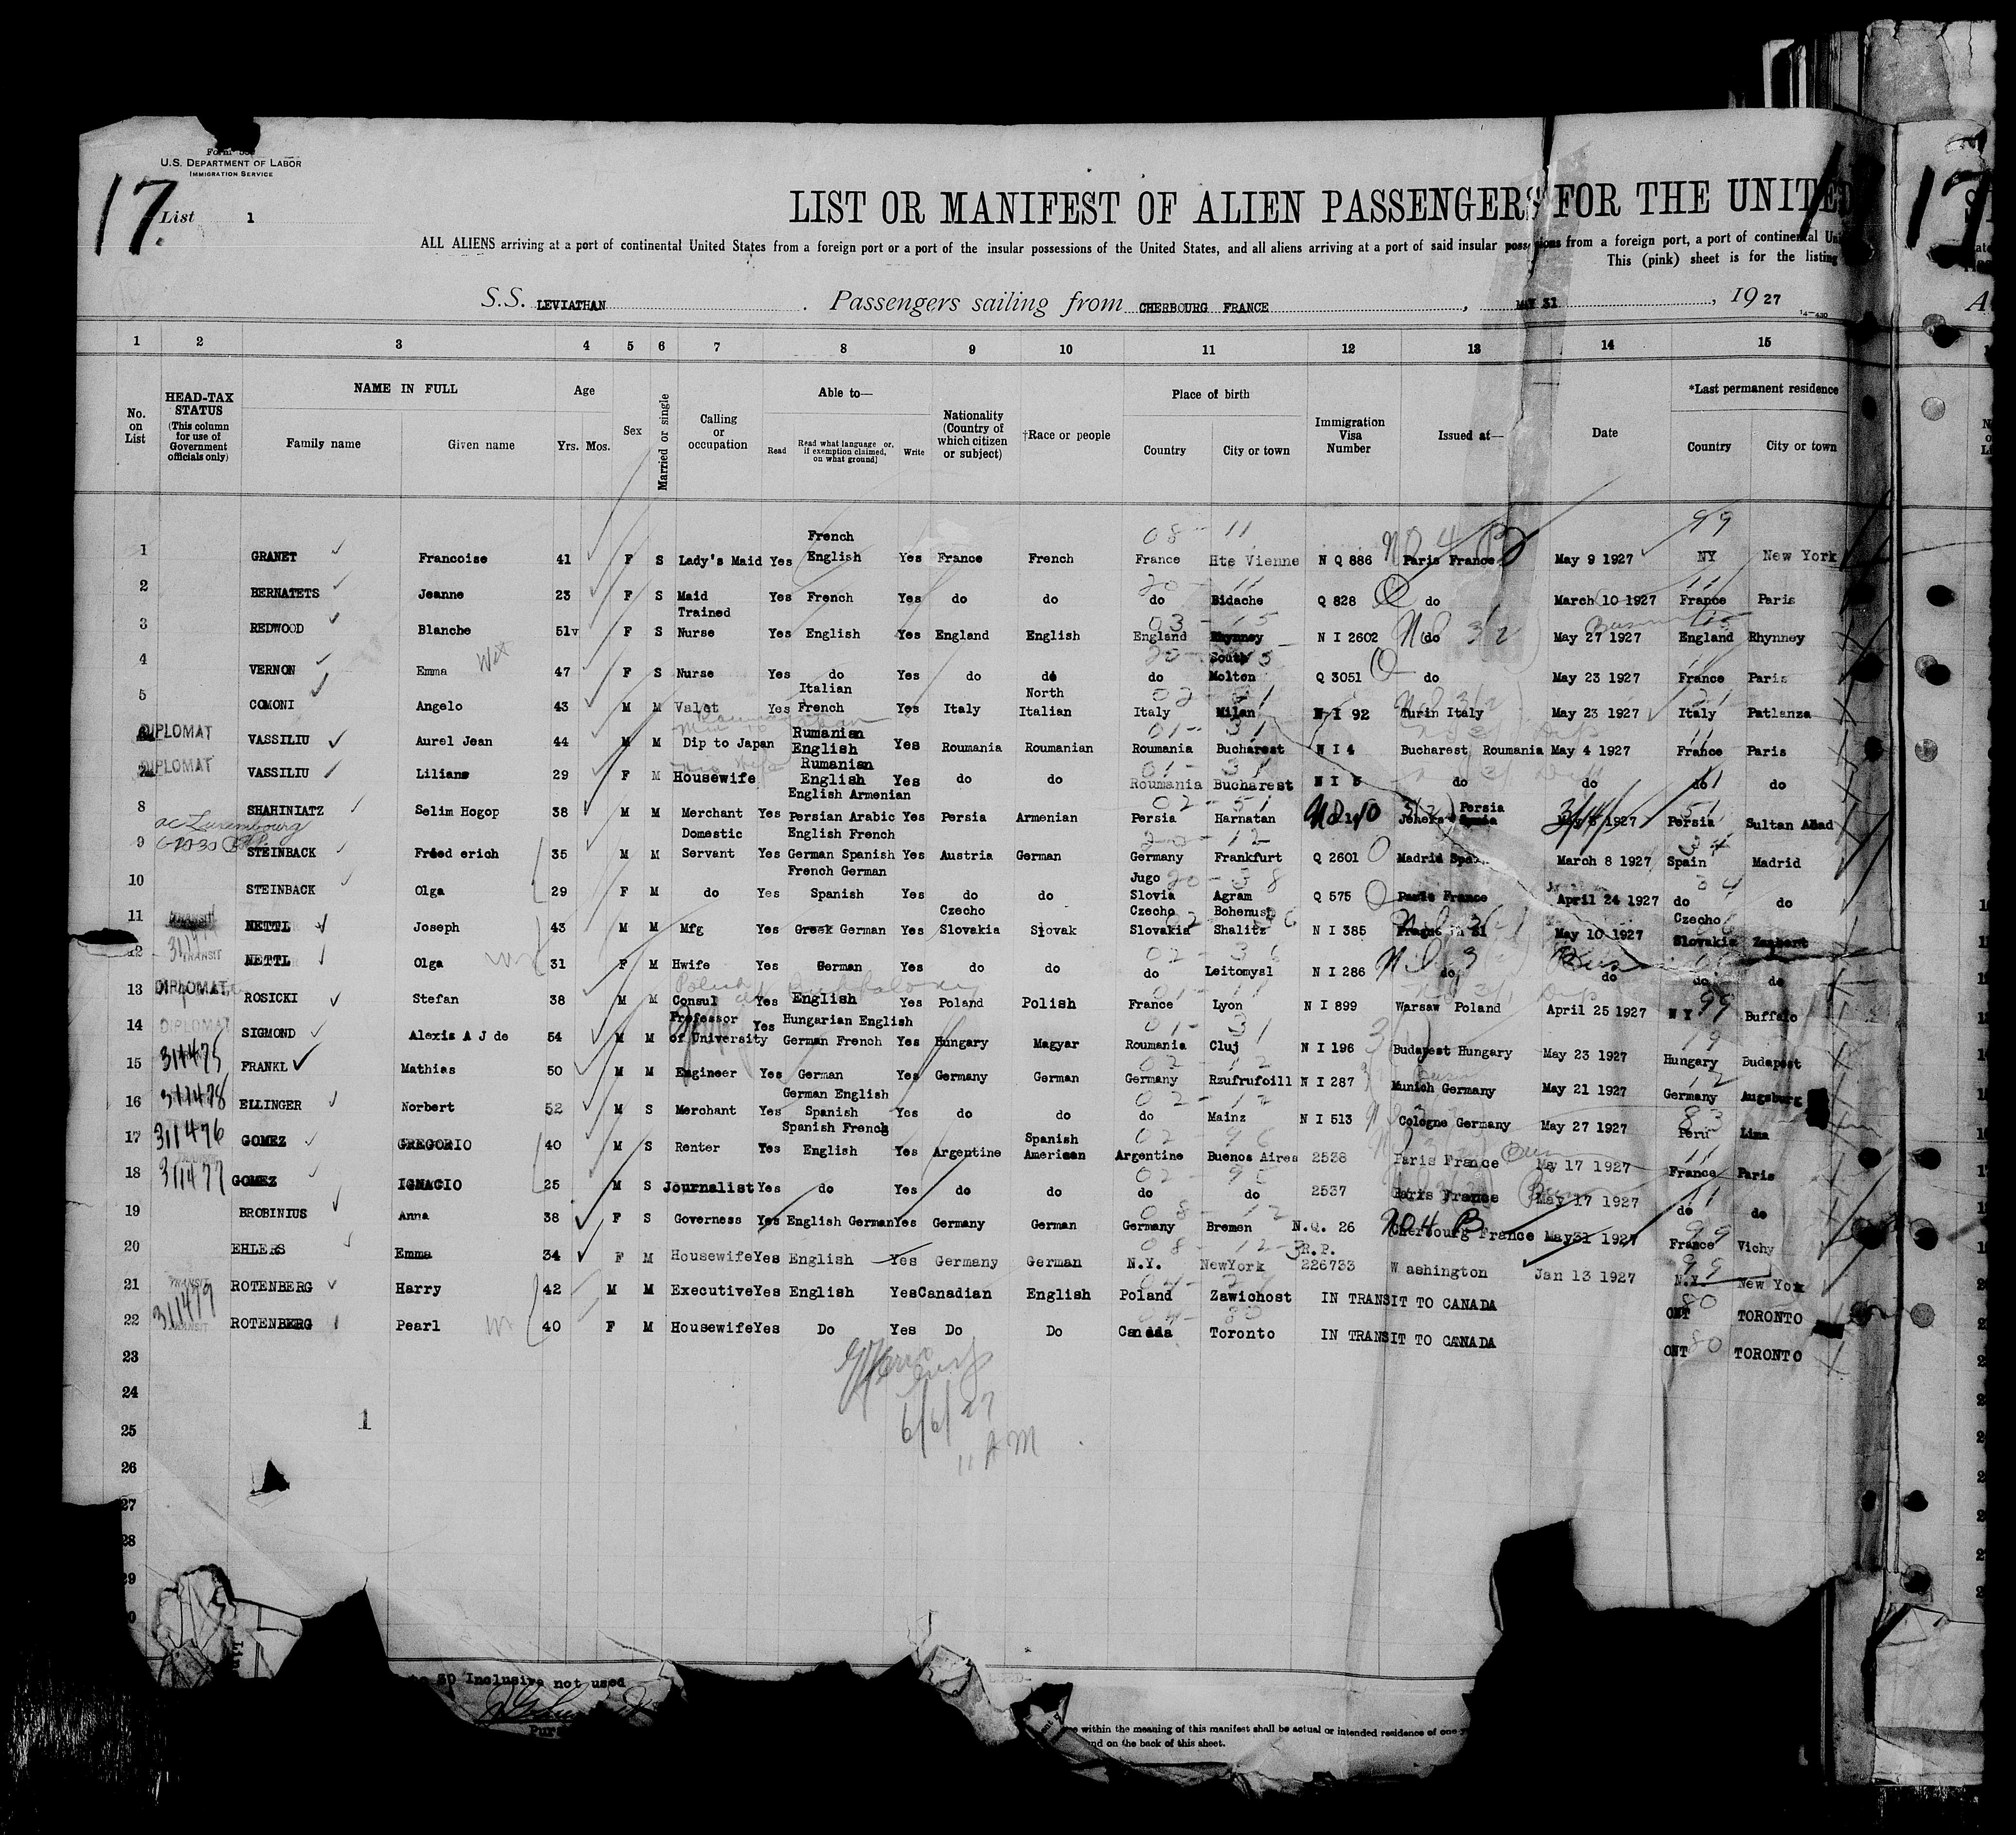 U.S. DEPARTMENT OF LABOR
IMMIGRATION SERVICE
17 List 1
LIST OR MANIFEST OF ALIEN PASSENGERS FOR THE UNITED
ALL ALIENS arriving at a port of continental United States from a foreign port or a port of the insular possessions of the United States, and all aliens arriving at a port of said insular possessions from a foreign port, a port of continental
This (pink) sheet is for the listing
S.S. LEVIATHAN Passengers sailing from CHERBOURG FRANCE, MAY 31, 1927
1 2 3 4 5 6 7 8 9 10 11 12 13 14 15
No. on List HEAD-TAX STATUS (This column for use of Government officials only) NAME IN FULL Family name Given name Age Yrs. Mos. Sex Married or single Calling or occupation Able to— Read Read what language or, if exemption claimed, on what ground) Write Nationality (Country of which citizen or subject) †Race or people Place of birth Country City or town Immigration Visa Number Issued at— Date *Last permanent residence Country City or town
1 GRANET Francoise 41 F S Lady's Maid Yes French English Yes France French France Hte Vienne N Q 886 Paris France May 9 1927 NY New York
2 BERNATETS Jeanne 23 F S Maid Yes French Yes do do do Bidache Q 828 do March 10 1927 France Paris
3 REDWOOD Blanche 51 F S Trained Nurse Yes English Yes England English England Rhynney N I 2602 do May 27 1927 England Rhynney
4 VERNON Emma 47 F S Nurse Yes do Yes do do do South Molton Q 3051 do May 23 1927 France Paris
5 COMONI Angelo 43 M M Valet Yes Italian French Yes Italy North Italian Italy Milan N I 92 Turin Italy May 23 1927 Italy Patlanza
6 DIPLOMAT VASSILIU Aurel Jean 44 M M Dip to Japan Rumanian English Yes Roumania Roumanian Roumania Bucharest N I 4 Bucharest Roumania May 4 1927 France Paris
7 DIPLOMAT VASSILIU Liliane 29 F M Housewife Rumanian English Yes do do Roumania Bucharest N I 5 do do do do
8 SHAHINIATZ Selim Hogop 38 M M Merchant Yes English Armenian Persian Arabic Yes Persia Armenian Persia Harnatan Persia 1927 Persia Sultan Abad
9 STEINBACK Fried erich 35 M M Domestic Servant Yes English French German Spanish Yes Austria German Germany Frankfurt Q 2601 Madrid March 8 1927 Spain Madrid
10 STEINBACK Olga 29 F M do Yes French German Spanish Yes do do Jugo Slovia Agram Q 575 Paris France April 24 1927 do do
11 TRANSIT NETTL Joseph 43 M M Mfg Yes Greek German Yes Czecho Slovakia Slovak Czecho Slovakia Shalitz N I 385 May 10 1927 Czecho Slovakia
12 TRANSIT NETTL Olga 31 F M Hwife Yes German Yes do do do Leitomysl N I 286 do do do do
13 DIPLOMAT ROSICKI Stefan 38 M M Consul Yes English Yes Poland Polish France Lyon N I 899 Warsaw Poland April 25 1927 N Y Buffalo
14 DIPLOMAT SIGMOND Alexis A J de 54 M M Professor of University Yes Hungarian English German French Yes Hungary Magyar Roumania Cluj N I 196 Budapest Hungary May 23 1927 Hungary Budapest
15 311475 FRANKL Mathias 50 M M Engineer Yes German Yes Germany German Germany Rzufrufoill N I 287 Munich Germany May 21 1927 Germany Augsburg
16 311478 ELLINGER Norbert 52 M S Merchant Yes German English Spanish Yes do do do Mainz N I 513 Cologne Germany May 27 1927 Peru Lima
17 311476 GOMEZ GREGORIO 40 M S Renter Yes Spanish French English Yes Argentine Spanish American Argentine Buenos Aires 2538 Paris France May 17 1927 France Paris
18 311477 GOMEZ IGNACIO 25 M S Journalist Yes do Yes do do do do 2537 Paris France May 17 1927 do do
19 BROBINIUS Anna 38 F S Governess Yes English German Yes Germany German Germany Bremen N.Q. 26 Cherbourg France May 31 1927 France Vichy
20 EHLERS Emma 34 F M Housewife Yes English Yes Germany German N.Y. NewYork R.P. 226733 Washington Jan 13 1927 N.Y. New York
21 TRANSIT ROTENBERG Harry 42 M M Executive Yes English Yes Canadian English Poland Zawichost IN TRANSIT TO CANADA ONT TORONTO
22 311479 TRANSIT ROTENBERG Pearl 40 F M Housewife Yes Do Yes Do Do Canada Toronto IN TRANSIT TO CANADA ONT TORONTO
23
24
25 1
26
27
28
29
6/6/27
11 AM
30 Inclusive not used
within the meaning of this manifest shall be actual or intended residence of one
on the back of this sheet.